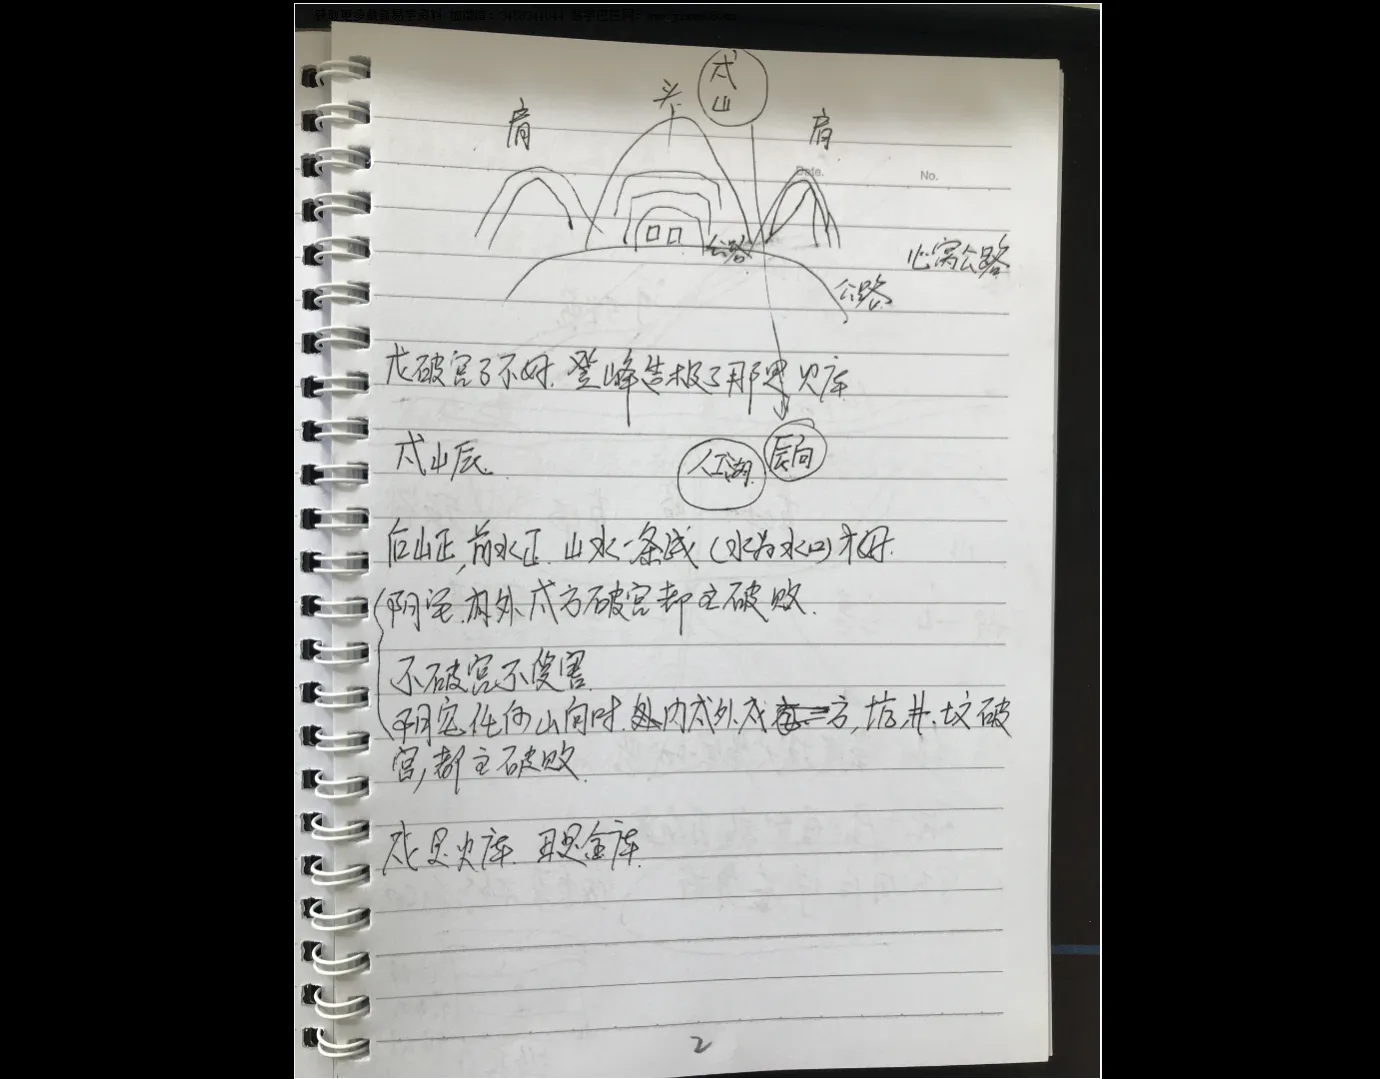 戌山
头
肩
肩
Date.
No.
公路
心窝公路
公路
戌破宫了不好.登峰造极了那是火库
戌山辰.
人工湖.
辰向
后山正,前水正.山水一条线(水为水口)才好.
阴宅.内外戌方破宫都主破败.
不破宫不伤害.
阴宅任何山向时.内戌外戌方,坑,井.坟破
宫,都主破败.
戌是火库.丑是金库.
2